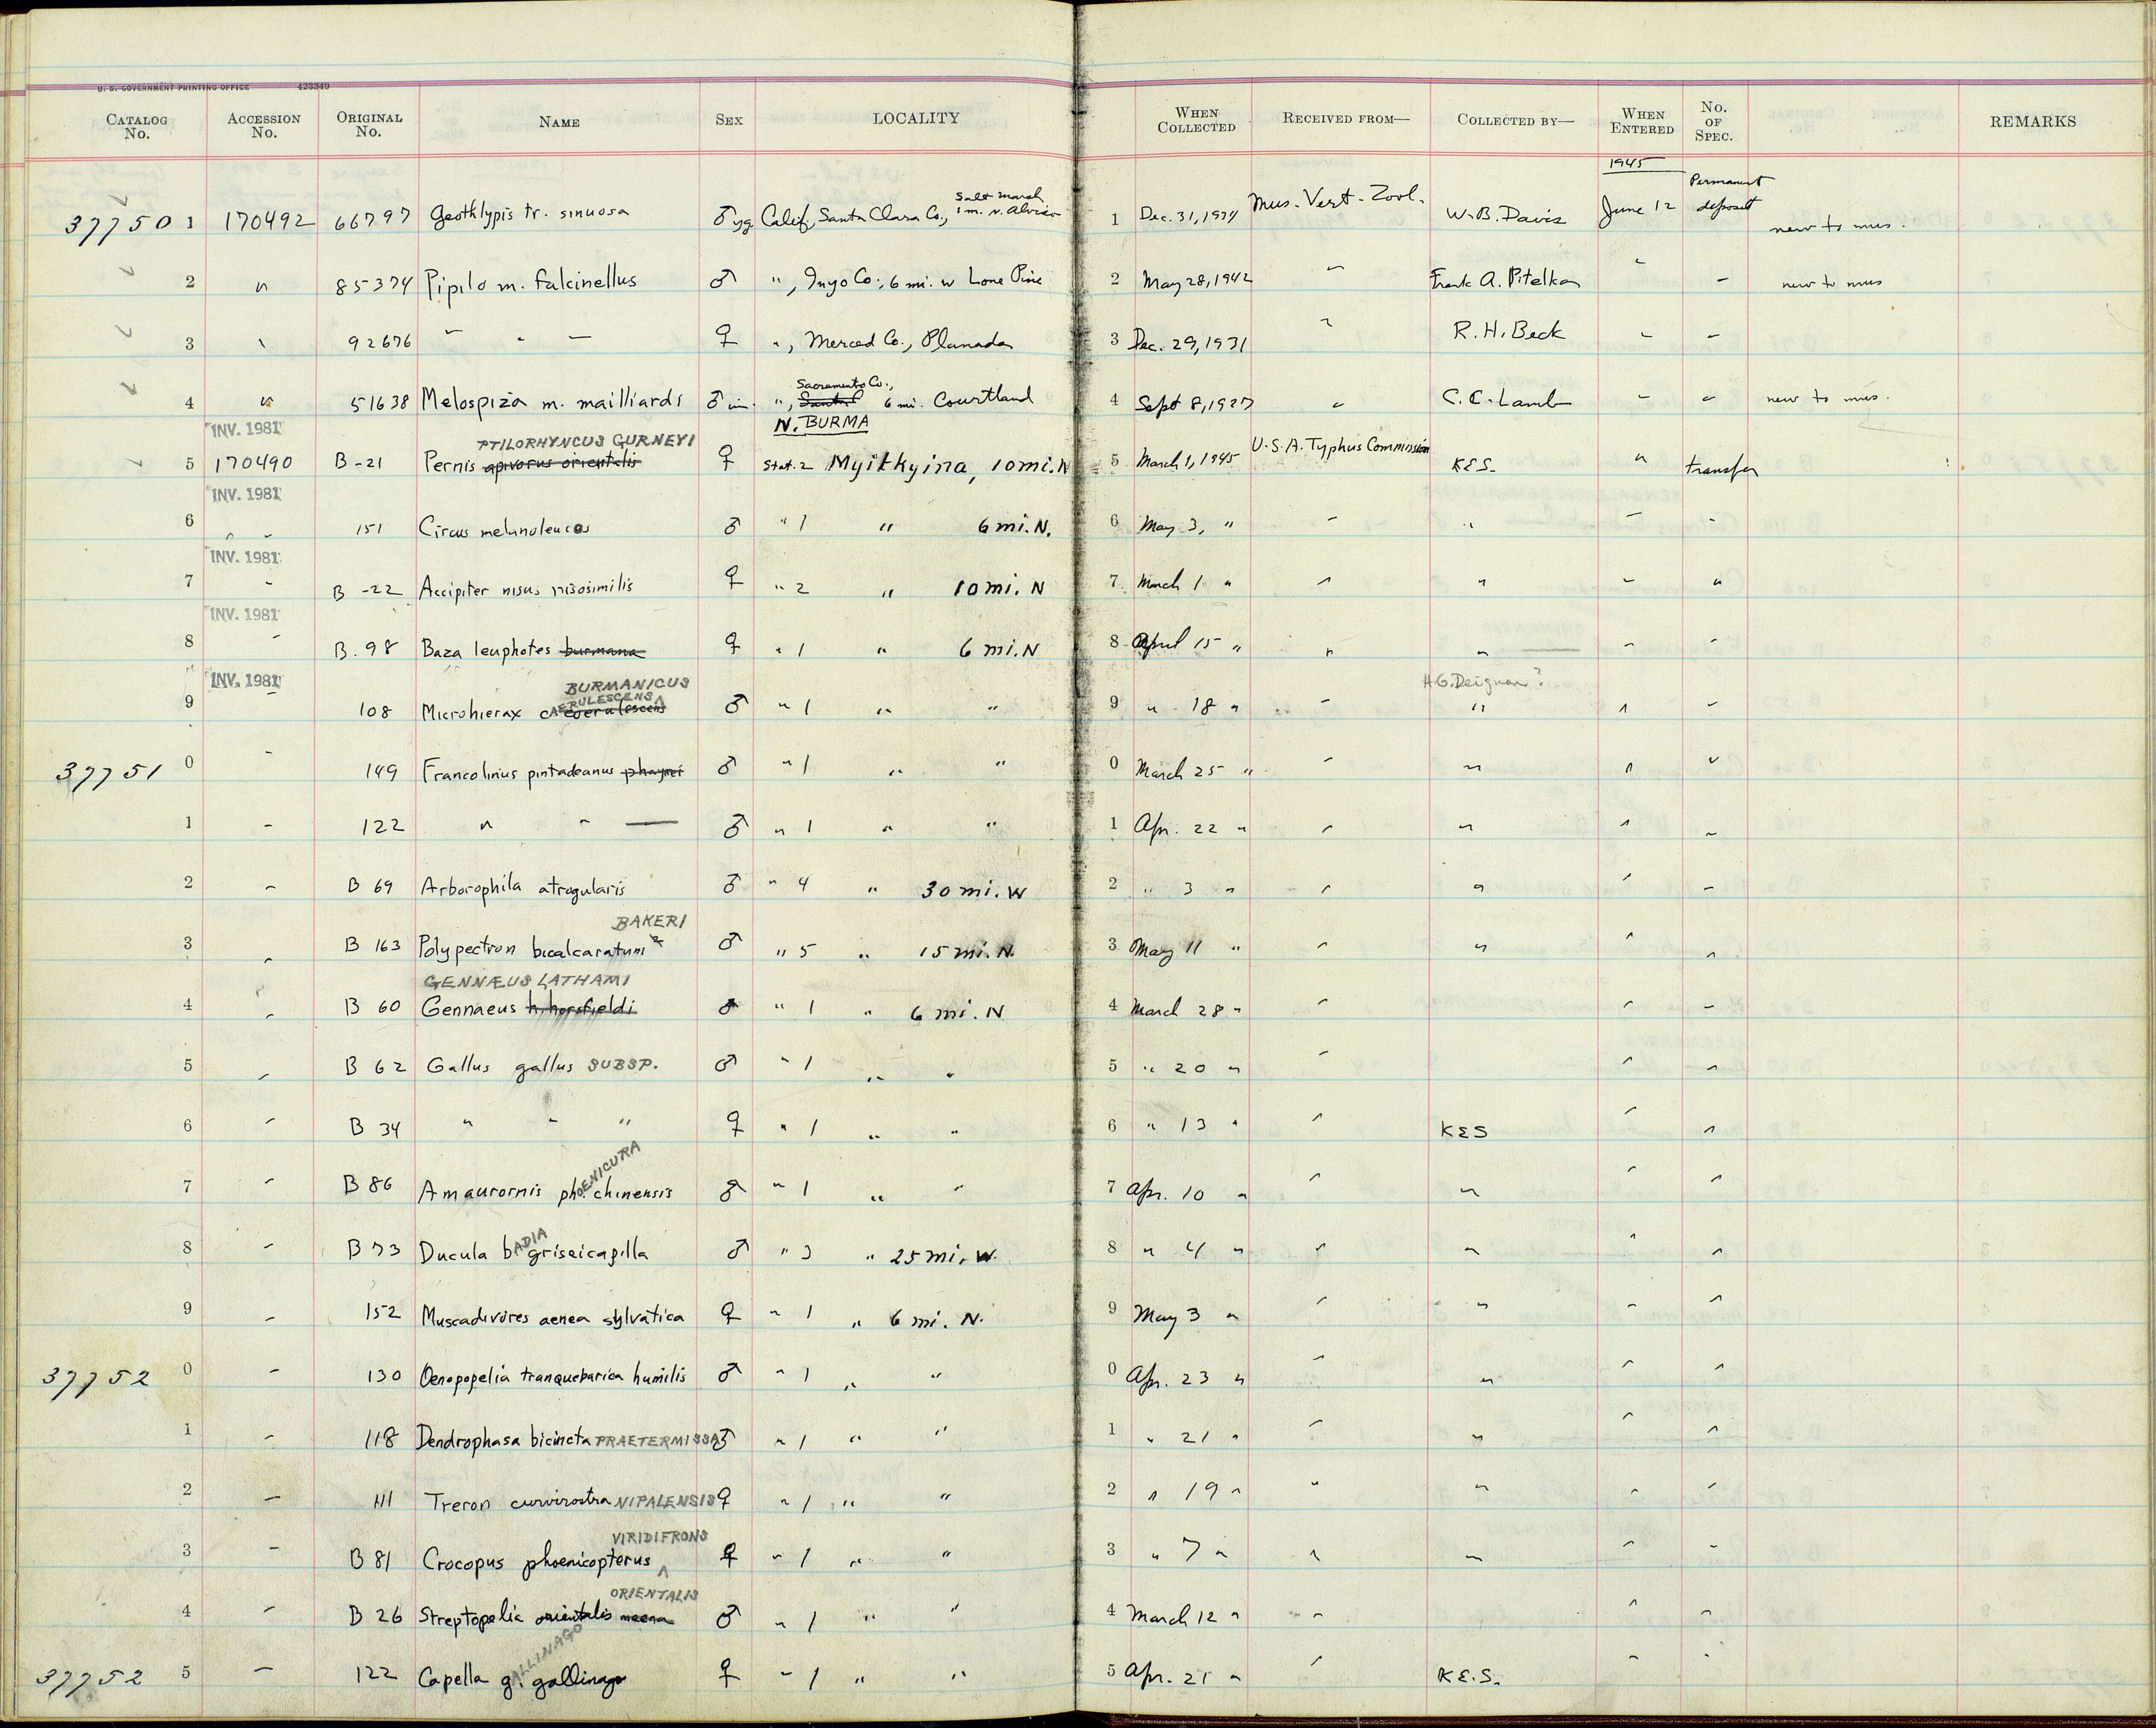 U. S. GOVERNMENT PRINTING OFFICE 423349
CATALOG No. ACCESSION No. ORIGINAL No. NAME SEX LOCALITY WHEN COLLECTED RECEIVED FROM— COLLECTED BY— WHEN ENTERED No. OF SPEC. REMARKS
1945
37750 1 170492 66797 Geothlypis tr. sinuosa ♂ yg Calif, Santa Clara Co., Salt marsh 1 m. N. Alviso 1 Dec. 31, Mus. Vert. Zool. W.B. Davis June 12 Permanent deposit new to mus.
2 " 85374 Pipilo m. falcinellus ♂ ", Inyo Co., 6 mi. w Lone Pine 2 May 28, 1942 " Frank A. Pitelka " " new to mus
3 " 92676 " " — ♀ ", Merced Co., Planada 3 Dec. 29, 1931 " R. H. Beck " "
4 " 51638 Melospiza m. mailliardi ♂ im. ", Sacramento Co., 6 mi. Courtland 4 Sept 8, 1927 " C. C. Lamb " " new to mus.
INV. 1981 N. BURMA
5 170490 B-21 Pernis apivorus orientalis PTILORHYNCUS GURNEYI ♀ Stat. 2 Myitkyina, 10 mi. N 5 March 1, 1945 U.S.A. Typhus Commission K.E.S. " transfer
INV. 1981
6 " " 151 Circus melanoleucos ♂ " 1 " 6 mi. N. 6 May 3, " " " " "
INV. 1981
7 " B-22 Accipiter nisus nisosimilis ♀ " 2 " 10 mi. N 7 March 1 " " " " "
INV. 1981
8 " B. 98 Baza leuphotes burmana ♀ " 1 " 6 mi. N 8 April 15 " " " " "
INV. 1981 H.G. Deignan?
9 " 108 Microhierax caerulescens BURMANICUS ♂ " 1 " " 9 " 18 " " " " "
37751 0 " 149 Francolinius pintadeanus phayrei ♂ " 1 " " 0 March 25 " " " " "
1 " 122 " " — ♂ " 1 " " 1 Apr. 22 " " " " "
2 " B 69 Arborophila atrogularis ♂ " 4 " 30 mi. W 2 " 3 " " " " "
3 " B 163 Polypectron bicalcaratum BAKERI ♂ " 5 " 15 mi. N. 3 May 11 " " " " "
GENNÆUS LATHAMI
4 " B 60 Gennaeus h. horsfieldi ♂ " 1 " 6 mi. N 4 March 28 " " " "
5 " B 62 Gallus gallus SUBSP. ♂ " 1 " " 5 " 20 " " " "
6 " B 34 " " " ♀ " 1 " " 6 " 13 " " KES " "
7 " B 86 Amaurornis phOENICURA chinensis ♂ " 1 " " 7 Apr. 10 " " " " "
8 " B 73 Ducula bADIA griseicapilla ♂ " 3 " 25 mi. W. 8 " 4 " " " " "
9 " 152 Muscadivores aenea sylvatica ♀ " 1 " 6 mi. N. 9 May 3 " " " " "
37752 0 " 130 Oenopopelia tranquebarica humilis ♂ " 1 " " 0 Apr. 23 " " " " "
1 " 118 Dendrophasa bicincta PRAETERMISSA ♂ " 1 " " 1 " 21 " " " " "
2 " 111 Treron curvirostra NIPALENSIS ♀ " 1 " " 2 " 19 " " " " "
3 " B 81 Crocopus phoenicopterus VIRIDIFRONS ♀ " 1 " " 3 " 7 " " " " "
4 " B 26 Streptopelia orientalis meena ORIENTALIS ♂ " 1 " " 4 March 12 " " " "
37752 5 " 122 Capella gALLINAGO gallinago ♀ " 1 " " 5 Apr. 21 " " K.E.S. " "